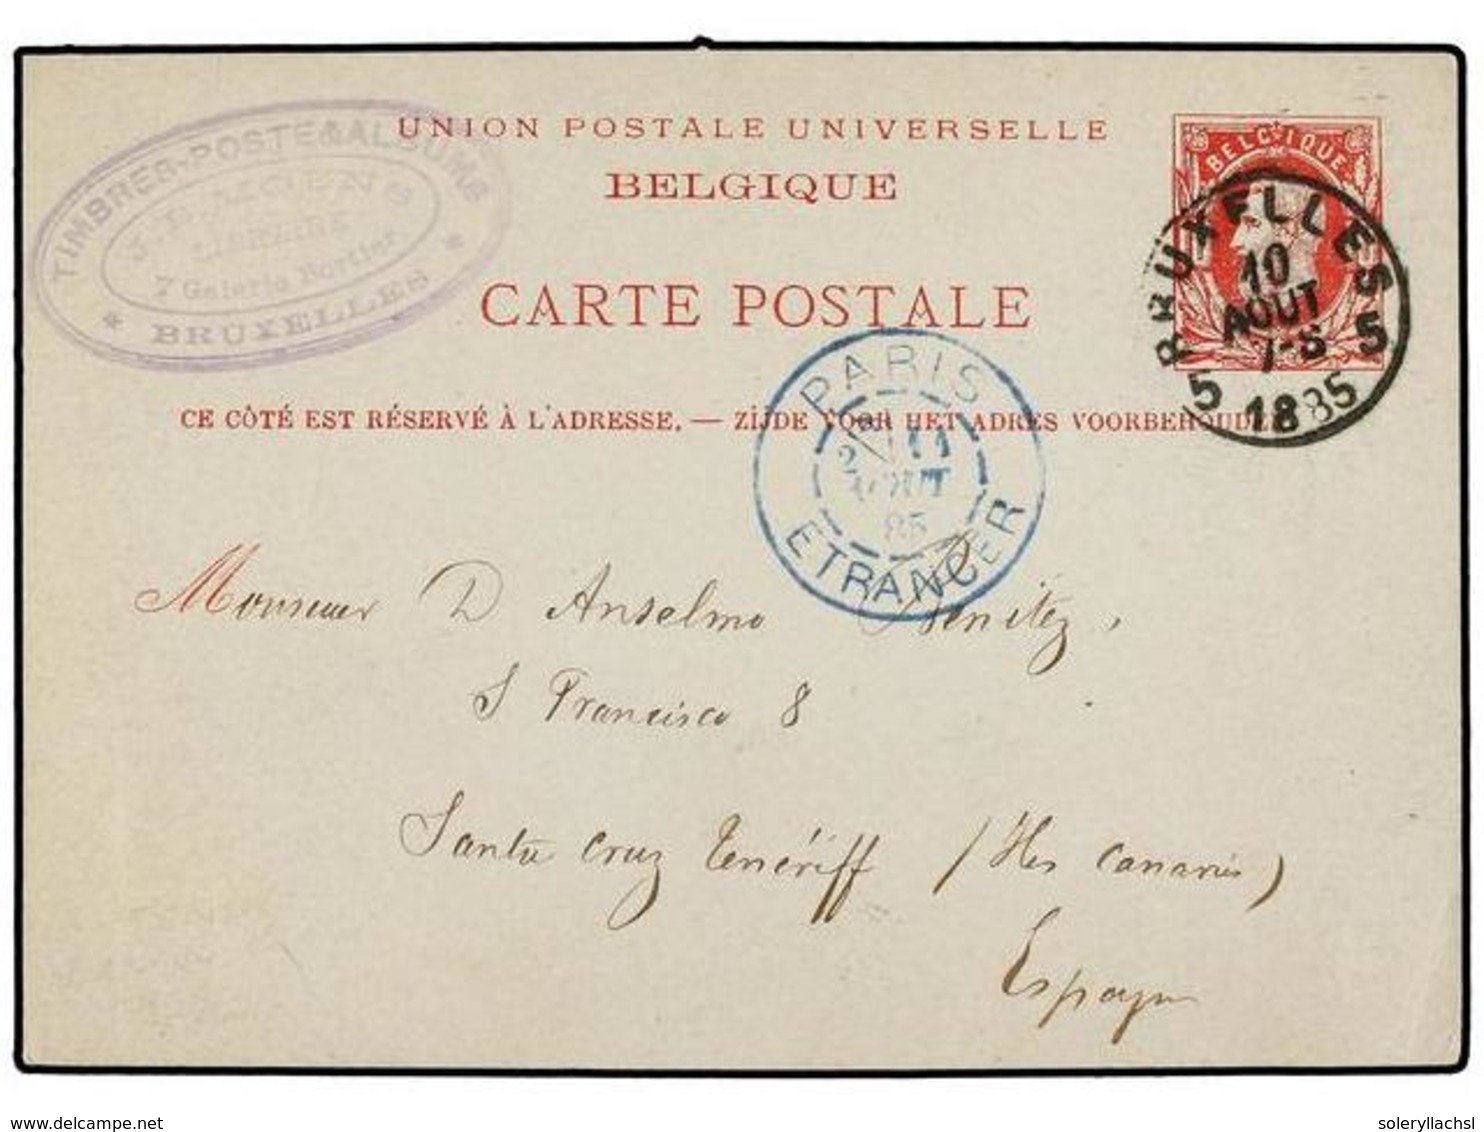 UNION POSTALE UNIVERSELLE
BELGIQUE
CARTE POSTALE
CE CÔTÉ EST RÉSERVÉ À L'ADRESSE. — ZIJDE VOOR HET ADRES VOORBEHOUDEN
TIMBRES-POSTE & ALBUMS
J.-B. MOENS
LIBRAIRE
7 Galerie Bortier
* BRUXELLES *
BELGIQUE
BRUXELLES
10
AOUT
7-8
5 5
1885
PARIS
11
AOUT
85
ETRANGER
Monsieur D Anselmo Benitez,
S Francisco 8
Santa Cruz Tenériff (Iles Canaries)
Espagne
delcampe.net
soleryllachsl